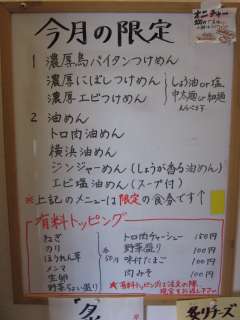 今月の限定
1 濃厚鳥パイタンつけめん
濃厚にぼしつけめん
濃厚エビつけめん
しょう油or塩
中太麺or細麺
えらべます
2 油めん
トロ肉油めん
横浜油めん
ジンジャーめん(しょうが香る油めん)
エビ塩油めん(スープ付)
※上記のメニューは限定の食券です↑
有料トッピング
ねぎ
のり
ほうれん草
メンマ
生卵
野菜ちょい盛り
各50円
トロ肉チャーシュー 150円
野菜盛り 100円
味付たまご 100円
肉みそ 100円
★有料トッピングは注文の際、
現金でお支払い下さい
オニチャー
炙りチーズ